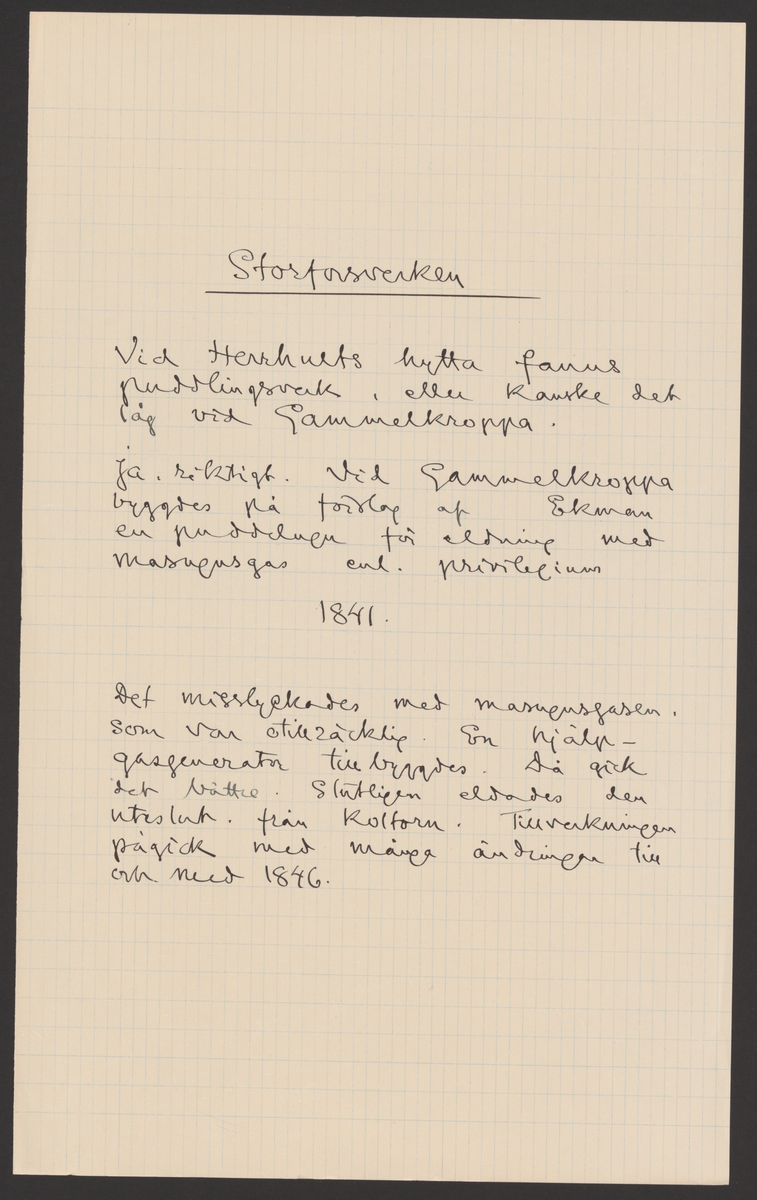 Storforsverken
Vid Herrhults hytta fanns
puddlingsverk, eller kanske det
låg vid Gammelkroppa.
Ja, riktigt. Vid Gammelkroppa
byggdes på förslag af Ekman
en puddelugn för eldning med
masugnsgas enl. privilegium
1841.
Det misslyckades med masugnsgasen,
som var otillräcklig. En hjälp-
gasgenerator tillbyggdes. Då gick
det bättre. Slutligen eldades den
uteslut. från koltorn. Tillverkningen
pågick med många ändringar till
och med 1846.